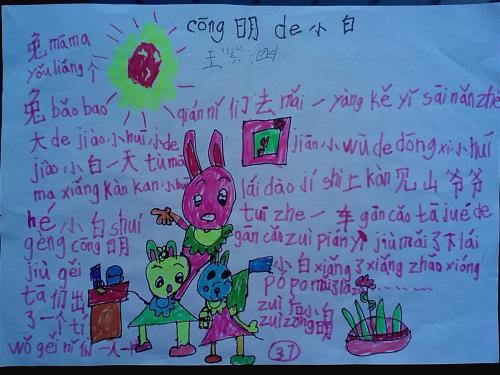 cōng 明 de 小 白
王
兔 māma
yǒu liǎng 个
兔 bǎo bao qián nǐ 们 去 mǎi 一 yàng kě yǐ sāi nǎn zhě
大 de jiào 小 huī 小 de jiān 小 wū de dōng xi 小 huī
jiào 小 白 一 天 tù ma
ma xiǎng kàn kan 小 lái dào jí shì 上 kàn 见 山 爷爷
hé 小 白 shuí tuī zhe 一 车 gān cǎo tā jué de
gèng cōng 明 gān cǎo zuì pián yi jiù mǎi 了 下 lái
jiù gěi 小 白 xiǎng 了 xiǎng zhǎo xióng
tā 们 出 pó po mǎi
了 一 个 tí zuì 后 小
zuì zōng 明
wǒ gěi nǐ 们 一 人 一
37